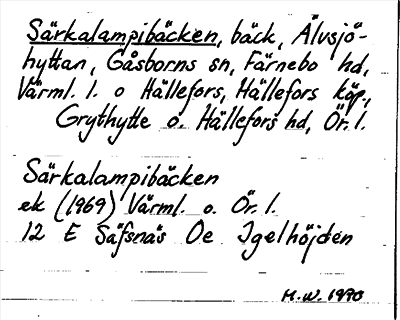 Särkalampibäcken, bäck, Älvsjö-
hyttan, Gåsborns sn, Färnebo hd,
Värml. l. o Hällefors, Hällefors köp.,
Grythytte o. Hällefors hd, Ör. l.
Särkalampibäcken
ek (1969) Värml. o. Ör. l.
12 E Säfsnäs Oe Igelhöjden
M.W. 1970